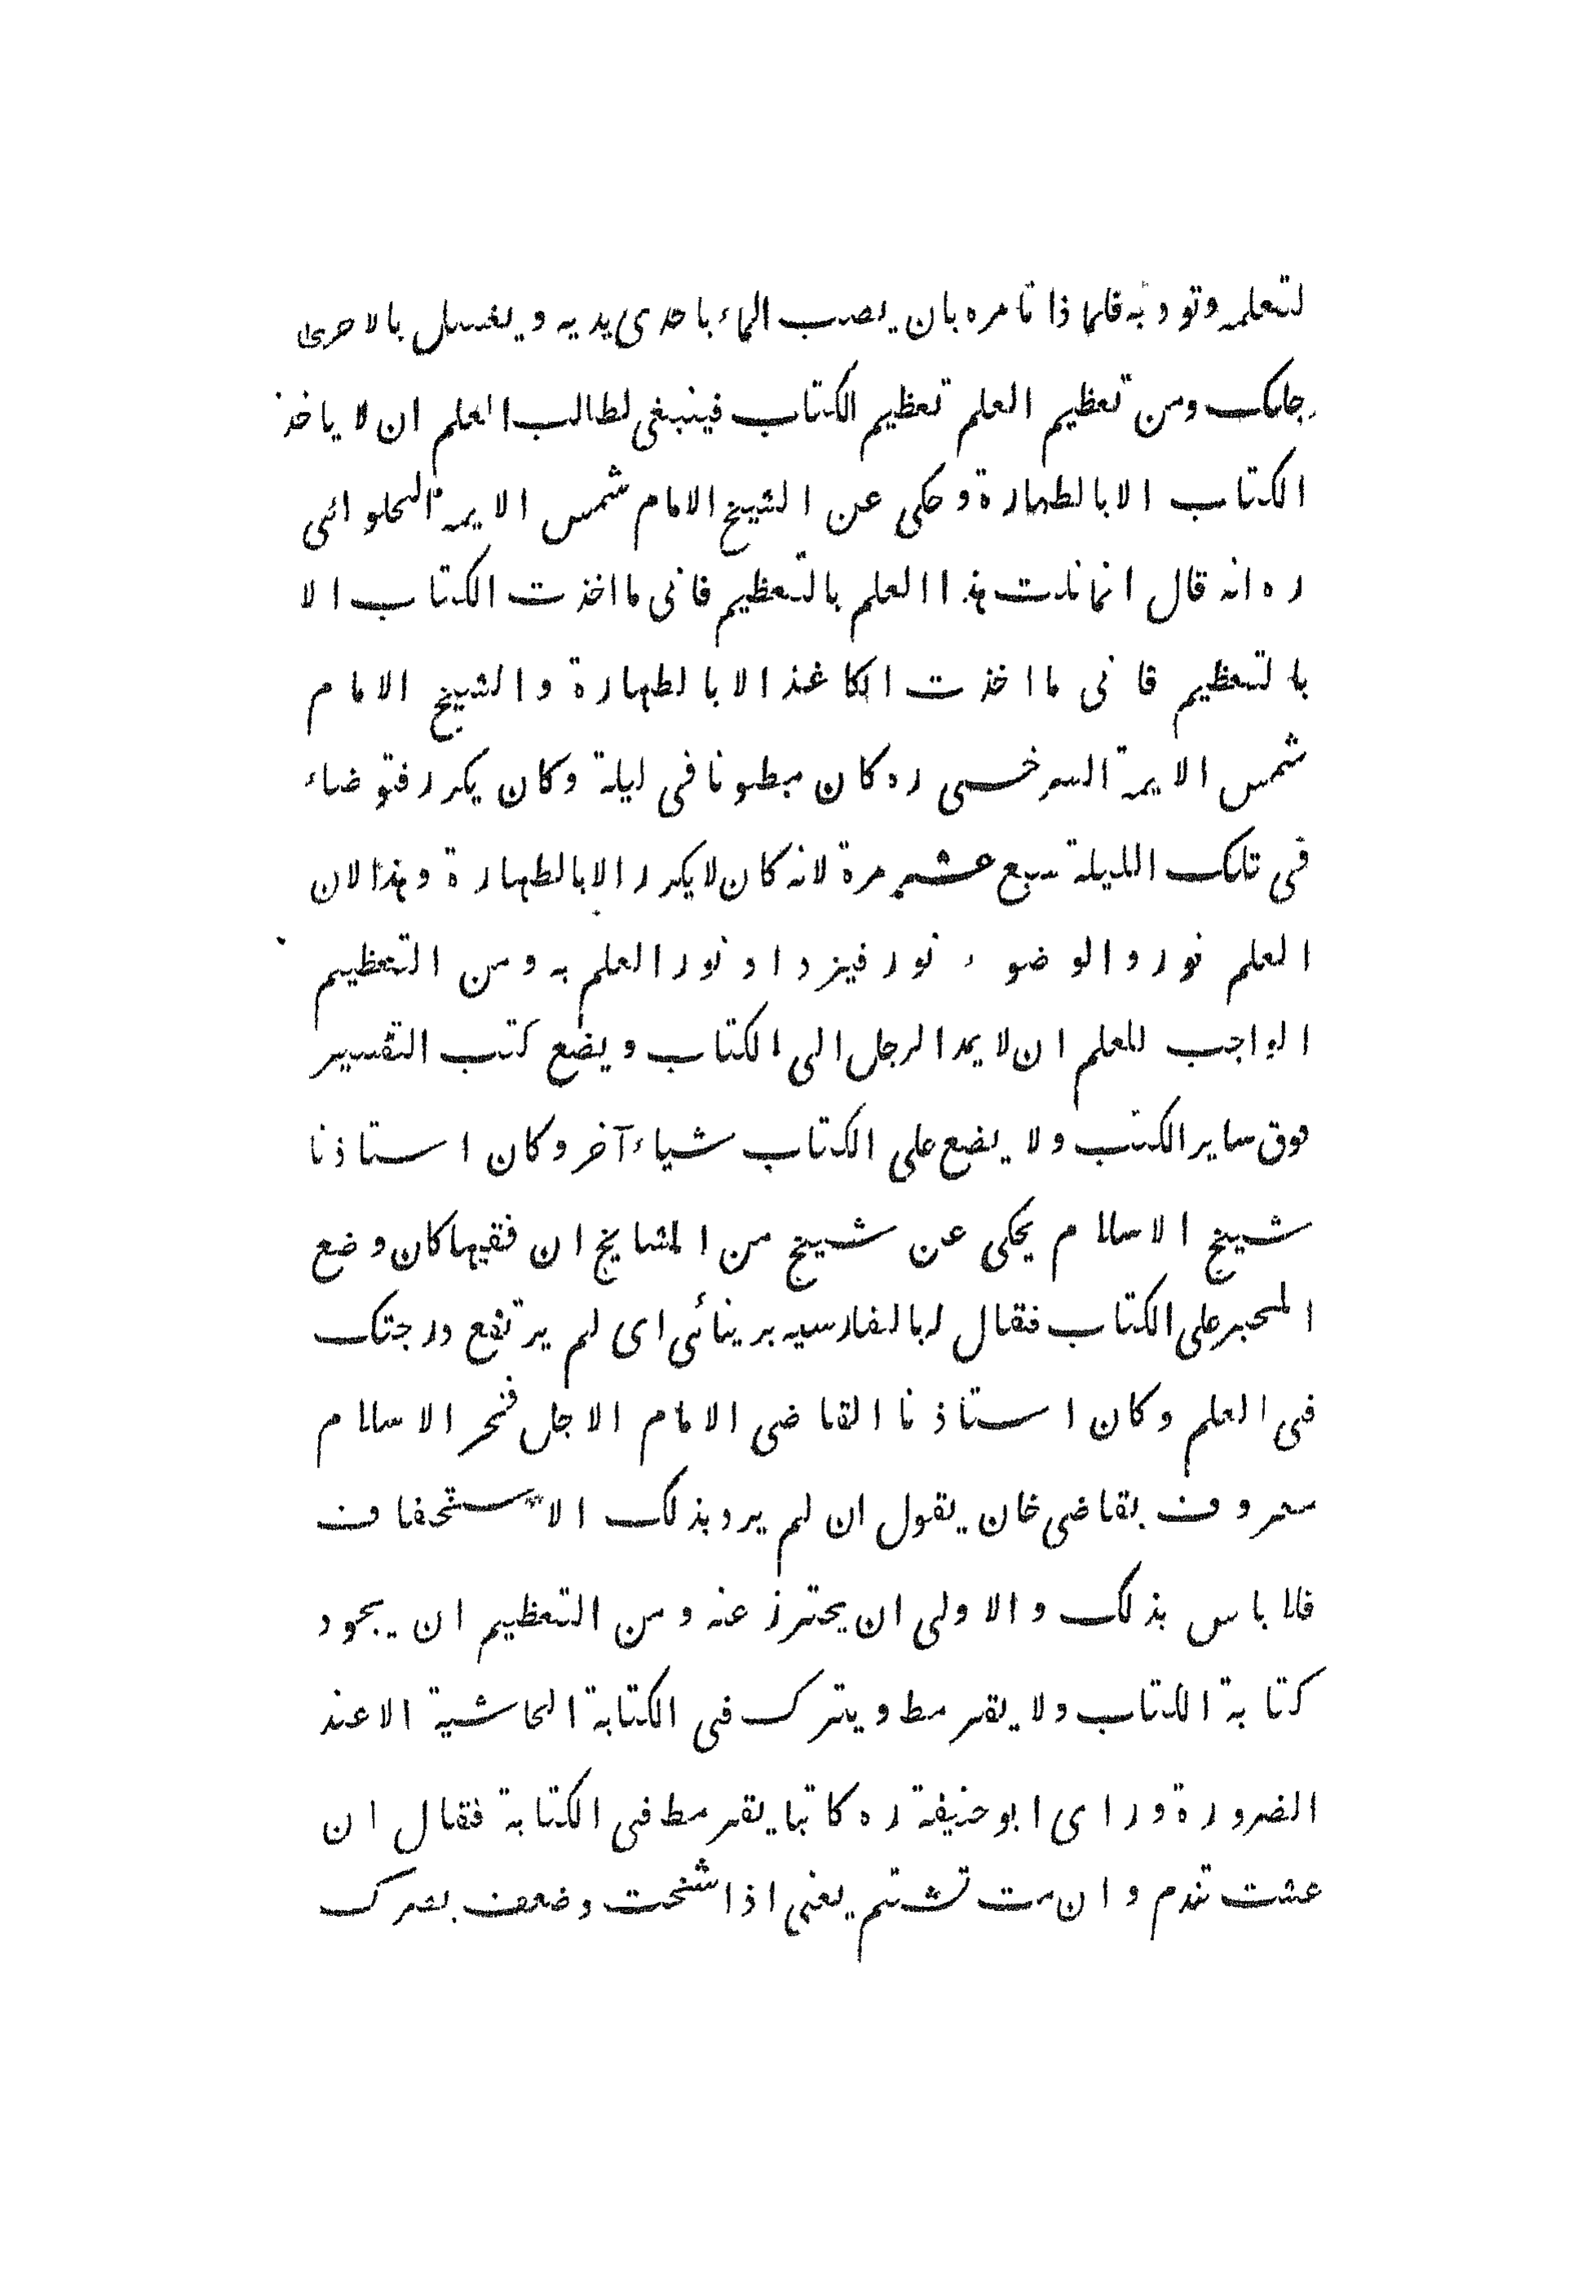 لتعلمه وتودبه فلما ذا تامره بان يصب الماء باحدى يديه ويغسل بالاخرى
رجلك ومن تعظيم العلم تعظيم الكتاب فينبغى لطالب العلم ان لا ياخذ
الكتاب الا بالطهارة وحكى عن الشيخ الامام شمس الايمة الحلوائى
ره انه قال انما نلت هذا العلم بالتعظيم فانى ما اخذت الكتاب الا
بالتعظيم فانى ما اخذت الكاغذ الا بالطهارة والشيخ الامام
شمس الايمة السرخسى ره كان مبطونا فى ليلة وكان يكرر فتوضاء
فى تلك الليلة سبع عشر مرة لانه كان لا يكرر الا بالطهارة وهذا لان
العلم نور والوضوء نور فيزداد نور العلم به ومن التعظيم
الواجب للعلم ان لا يمد الرجل الى الكتاب ويضع كتب التفسير
فوق ساير الكتب ولا يضع على الكتاب شياء آخر وكان استاذنا
شيخ الاسلام يحكى عن شيخ من المشايخ ان فقيها كان وضع
المحبر على الكتاب فقال له بالفارسيه برينائى اى لم يرتفع درجتك
فى العلم وكان استاذنا القاضى الامام الاجل فخر الاسلام
معروف بقاضى خان يقول ان لم يرد بذلك الاستخفاف
فلا باس بذلك والاولى ان يحترز عنه ومن التعظيم ان يجود
كتابة الكتاب ولا يقرمط ويترك فى الكتابة الحاشية الا عند
الضرورة وراى ابو حنيفة ره كاتبا يقرمط فى الكتابة فقال ان
عشت تندم وان مت تشتم يعنى اذا شخت وضعف بصرك